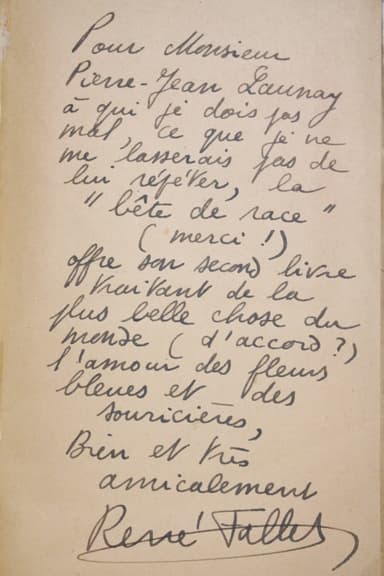 Pour Monsieur
Pierre-Jean Launay
à qui je dois pas
mal, ce que je ne
me lasserais pas de
lui répéter, la
"bête de race"
(merci !)
offre son second livre
traitant de la
plus belle chose du
monde (d'accord ?)
l'amour des fleurs
bleues et des
souricières,
Bien et très
amicalement
René Fallet